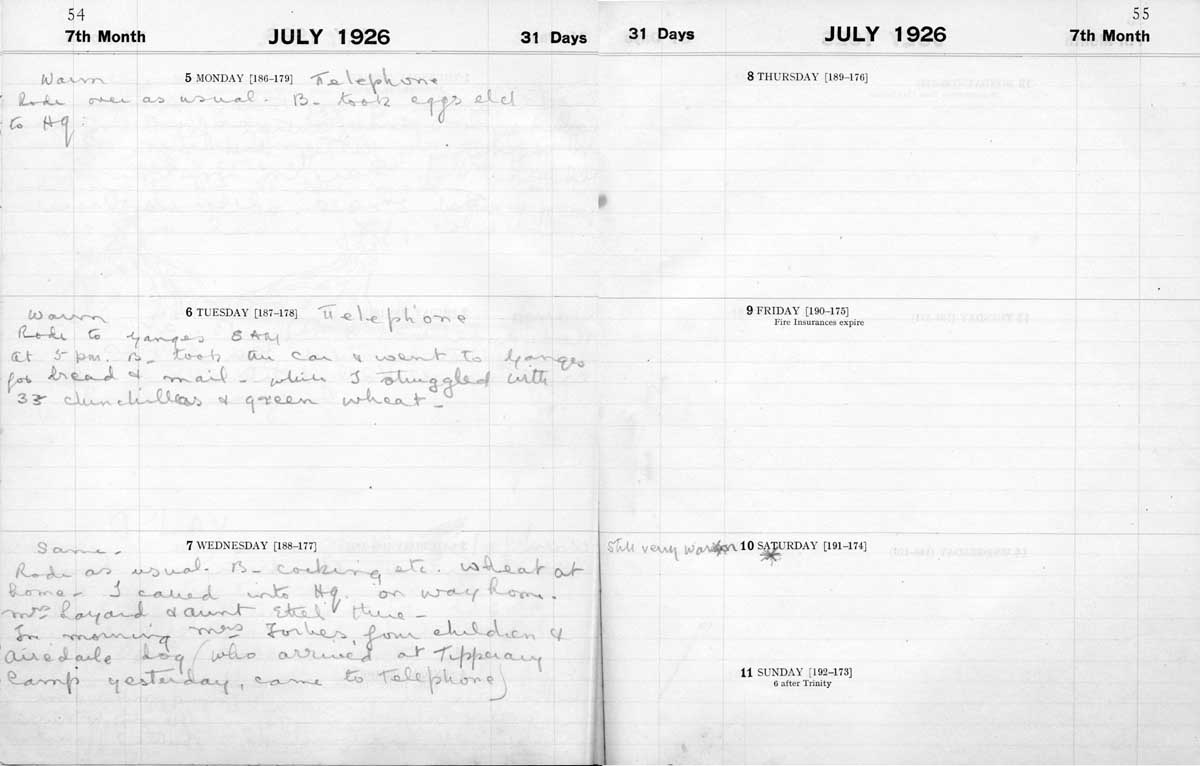 54
7th Month JULY 1926 31 Days
Warm 5 MONDAY [186–179] Telephone
Rode over as usual. B– took eggs etc
to Hq.
Warm 6 TUESDAY [187–178] Telephone
Rode to Ganges 8 AM
at 5 pm. B– took the car & went to Ganges
for bread & mail – while I struggled with
33 chinchillas & green wheat –
Same – 7 WEDNESDAY [188–177]
Rode as usual. B– cocking etc. wheat at
home – I called into Hq. on way home.
Mrs Layard & aunt Ethel there –
In morning Mrs Forbes, four children &
Airedale dog (who arrived at Tipperary
Camp yesterday, came to Telephone)
55
31 Days JULY 1926 7th Month
8 THURSDAY [189–176]
9 FRIDAY [190–175]
Fire Insurances expire
Still very warm 10 SATURDAY [191–174]
11 SUNDAY [192–173]
6 after Trinity